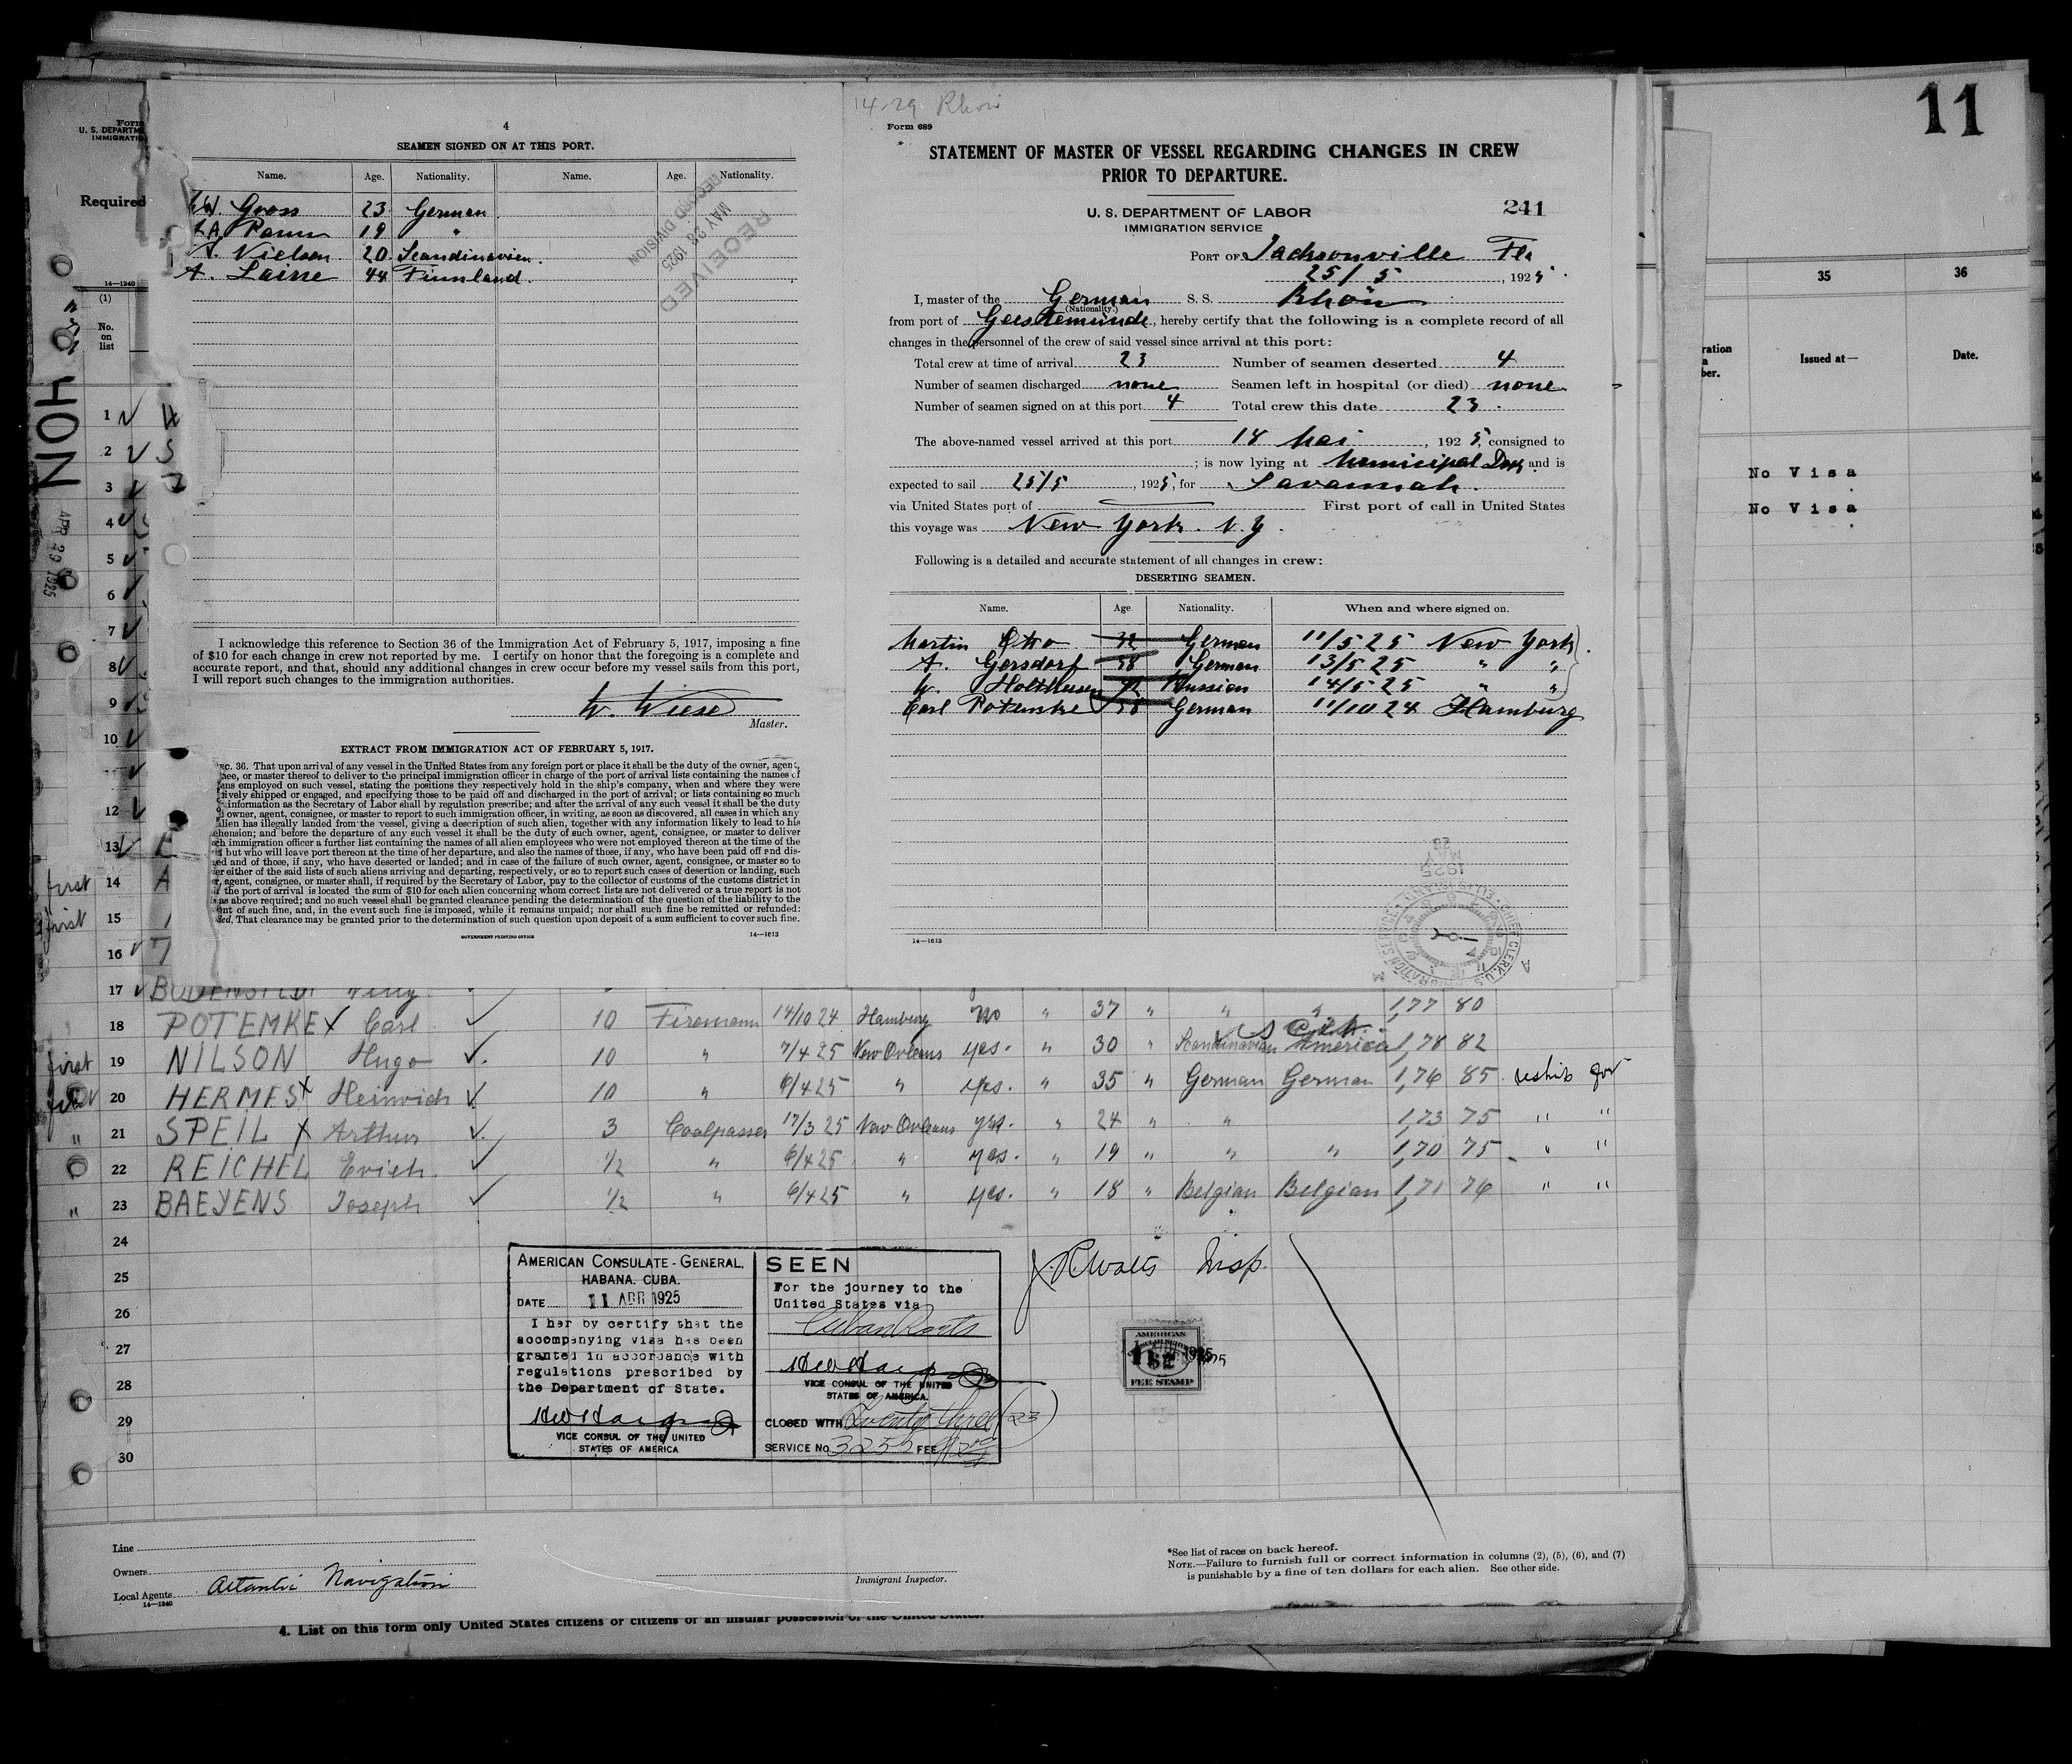 14-29 Rhön
11
Form
U. S. DEPARTME
IMMIGRATIO
Required
14—1240
(1)
No.
on
list
4
SEAMEN SIGNED ON AT THIS PORT.
Name. Age. Nationality. Name. Age. Nationality.
W. Gross 23 German
19 "
A. Nielsen 20 Scandinavien.
A. Laine 44 Finnland.
RECEIVED
MAY 28 1925
RECORD DIVISION
I acknowledge this reference to Section 36 of the Immigration Act of February 5, 1917, imposing a fine
of $10 for each change in crew not reported by me. I certify on honor that the foregoing is a complete and
accurate report, and that, should any additional changes in crew occur before my vessel sails from this port,
I will report such changes to the immigration authorities.
W. Wiese
Master.
EXTRACT FROM IMMIGRATION ACT OF FEBRUARY 5, 1917.
EC. 36. That upon arrival of any vessel in the United States from any foreign port or place it shall be the duty of the owner, agent,
nee, or master thereof to deliver to the principal immigration officer in charge of the port of arrival lists containing the names of
ens employed on such vessel, stating the positions they respectively hold in the ship's company, when and where they were
tively shipped or engaged, and specifying those to be paid off and discharged in the port of arrival; or lists containing so much
information as the Secretary of Labor shall by regulation prescribe; and after the arrival of any such vessel it shall be the duty
owner, agent, consignee, or master to report to such immigration officer, in writing, as soon as discovered, all cases in which any
alien has illegally landed from the vessel, giving a description of such alien, together with any information likely to lead to his
hension; and before the departure of any such vessel it shall be the duty of such owner, agent, consignee, or master to deliver
ch immigration officer a further list containing the names of all alien employees who were not employed thereon at the time of the
but who will leave port thereon at the time of her departure, and also the names of those, if any, who have been paid off and dis-
ed and of those, if any, who have deserted or landed; and in case of the failure of such owner, agent, consignee, or master so to
er either of the said lists of such aliens arriving and departing, respectively, or so to report such cases of desertion or landing, such
r, agent, consignee, or master shall, if required by the Secretary of Labor, pay to the collector of customs of the customs district in
the port of arrival is located the sum of $10 for each alien concerning whom correct lists are not delivered or a true report is not
as above required; and no such vessel shall be granted clearance pending the determination of the question of the liability to the
ent of such fine, and, in the event such fine is imposed, while it remains unpaid; nor shall such fine be remitted or refunded:
ded, That clearance may be granted prior to the determination of such question upon deposit of a sum sufficient to cover such fine.
GOVERNMENT PRINTING OFFICE 14—1613
Form 689
STATEMENT OF MASTER OF VESSEL REGARDING CHANGES IN CREW
PRIOR TO DEPARTURE.
U. S. DEPARTMENT OF LABOR
IMMIGRATION SERVICE
241
PORT OF Jacksonville Fla
25/5, 1925.
I, master of the German S. S. Rhön
(Nationality.)
from port of Geestemünde, hereby certify that the following is a complete record of all
changes in the personnel of the crew of said vessel since arrival at this port:
Total crew at time of arrival 23 Number of seamen deserted 4
Number of seamen discharged none Seamen left in hospital (or died) none
Number of seamen signed on at this port 4 Total crew this date 23.
The above-named vessel arrived at this port 18 Mai, 1925, consigned to
; is now lying at Municipal Dock and is
expected to sail 25/5, 1925, for Savannah.
via United States port of First port of call in United States
this voyage was New York. N.Y.
Following is a detailed and accurate statement of all changes in crew:
DESERTING SEAMEN.
Name. Age. Nationality. When and where signed on.
Martin Otto 32 German 11/5 25 New York
A. Gersdorf 38 German 13/5 25 " "
W. Holthusen 42 Russian 14/5 25 " "
Carl Potemke 38 German 11/10 24 Hamburg
14—1613
MAY 28 1925
35 36
ration
a
ber.
Issued at— Date.
No Visa
No Visa
APR 29 1925
1
2
3
4
5
6
7
8
9
10
11
12
13
first 14 A
first 15
16
17 BODENSTEDT Willy
18 POTEMKE x Carl 10 Firemann 14/10 24 Hamburg no " 37 " " " 1,77 80
U S Cit.
first 19 NILSON Hugo 10 " 7/4 25 New Orleans yes. " 30 " Scandinavian America 1,78 82
20 HERMES x Heinrich 10 " 6/4 25 " yes. " 35 " German German 1,76 85 reship for
" 21 SPEIL x Arthur 3 Coalpasser 17/3 25 New Orleans yes. " 24 " " 1,73 75 " "
22 REICHEL Erich 1/2 " 6/4 25 " yes. " 19 " " " 1,70 75 " "
" 23 BAEYENS Joseph 1/2 " 6/4 25 " yes. " 18 " Belgian Belgian 1,71 76 " "
24
25
26
27
28
29
30
AMERICAN CONSULATE-GENERAL,
HABANA. CUBA.
DATE 11 APR 1925
I her by certify that the
accompanying visa has been
granted in accordance with
regulations prescribed by
the Department of State.
VICE CONSUL OF THE UNITED
STATES OF AMERICA
SEEN
For the journey to the
United States via
Cuban Ports
VICE CONSUL OF THE UNITED
STATES OF AMERICA.
CLOSED WITH Twenty three (23)
SERVICE No. 3255 FEE
Insp.
AMERICAN
$2
FEE STAMP
Line
Owners
Local Agents Atlantic Navigation
14—1240
Immigrant Inspector.
*See list of races on back hereof.
NOTE.—Failure to furnish full or correct information in columns (2), (5), (6), and (7)
is punishable by a fine of ten dollars for each alien. See other side.
4. List on this form only United States citizens or citizens of an insular possession of the United States.